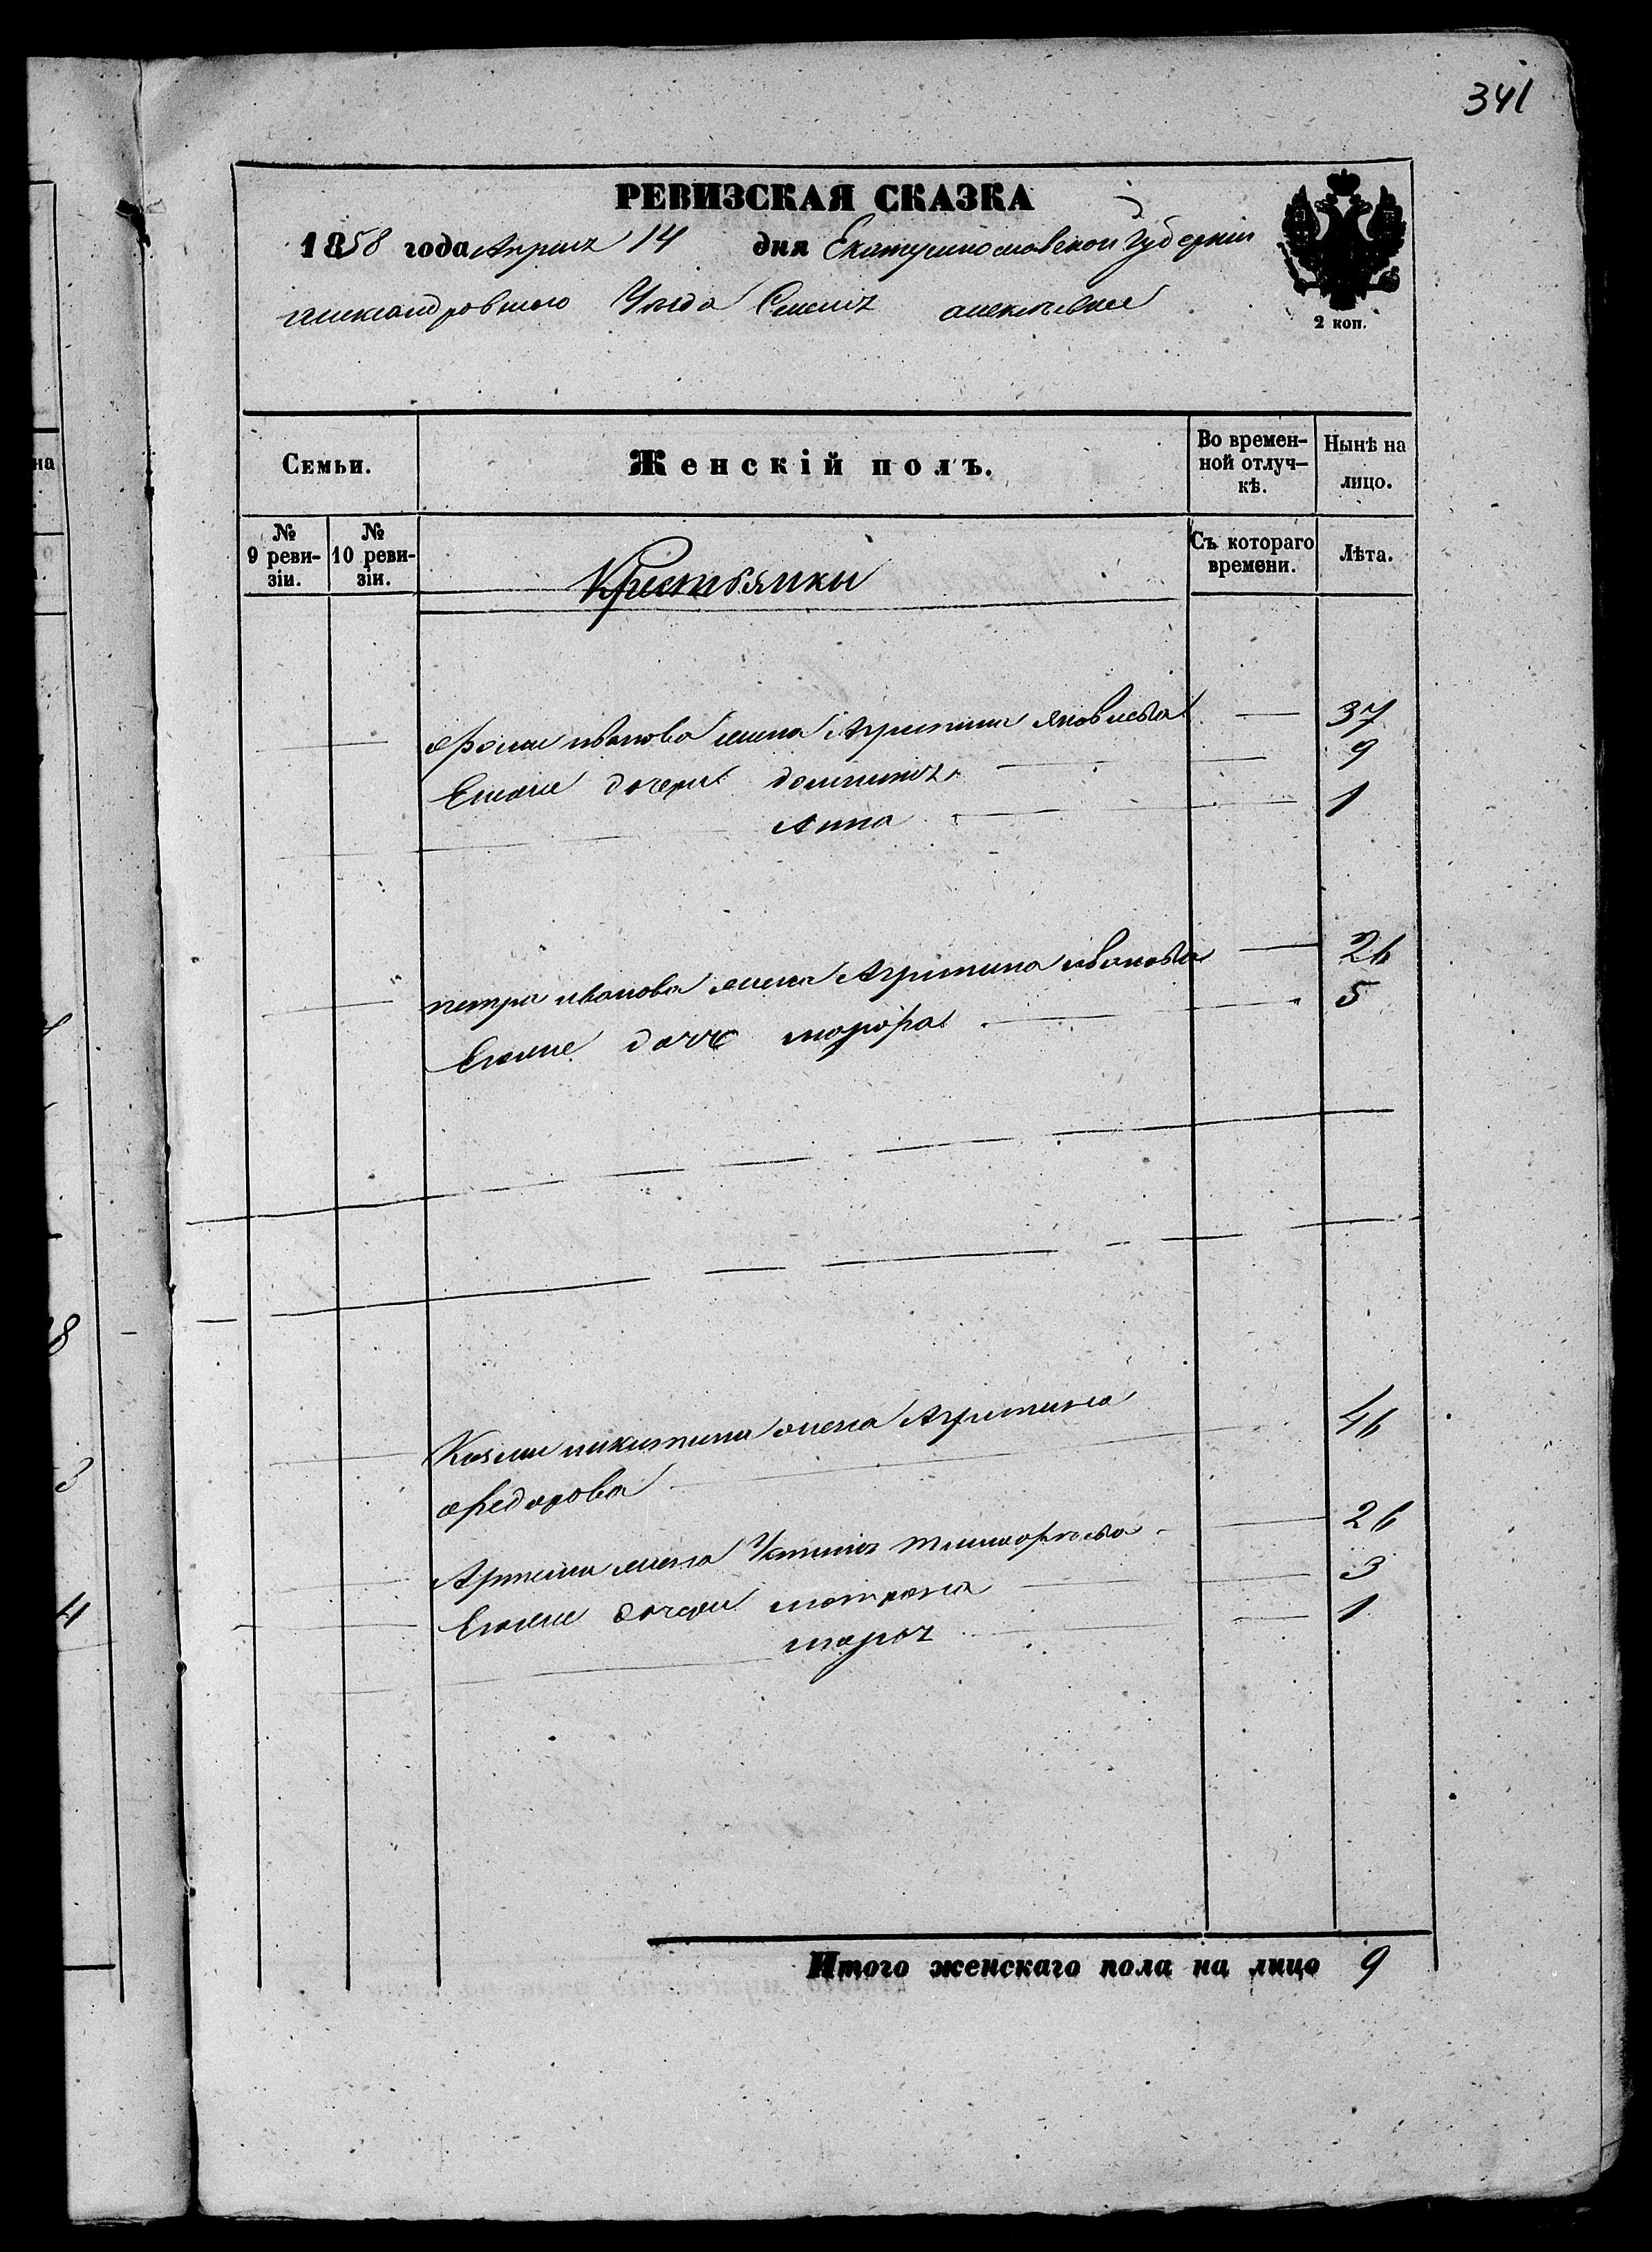 341
РЕВИЗСКАЯ СКАЗКА
1858 года Апреля 14 дня Екатеринославской Губернии
Александровского Уезда Села алексеевки
2 коп.
Семьи.
Женскій полъ.
Во времен-
ной отлуч-
кѣ.
Нынѣ на
лицо.
№
9 реви-
зіи.
№
10 реви-
зіи.
Крестьянки
Съ котораго
времени.
Лѣта.
Фомы иванова жена Агрипина яковлева 37
Его же дочери домникия 9
Анна 1
петра иванова жена Агрипина иванова 26
Его же дочь марфа 5
Козмы никитина жена Агрипина 46
Федорова
Артема жена Устинья тимофеева 26
Его же дочери матрона 3
марья 1
Итого женскаго пола на лицо 9
на
8
3
4